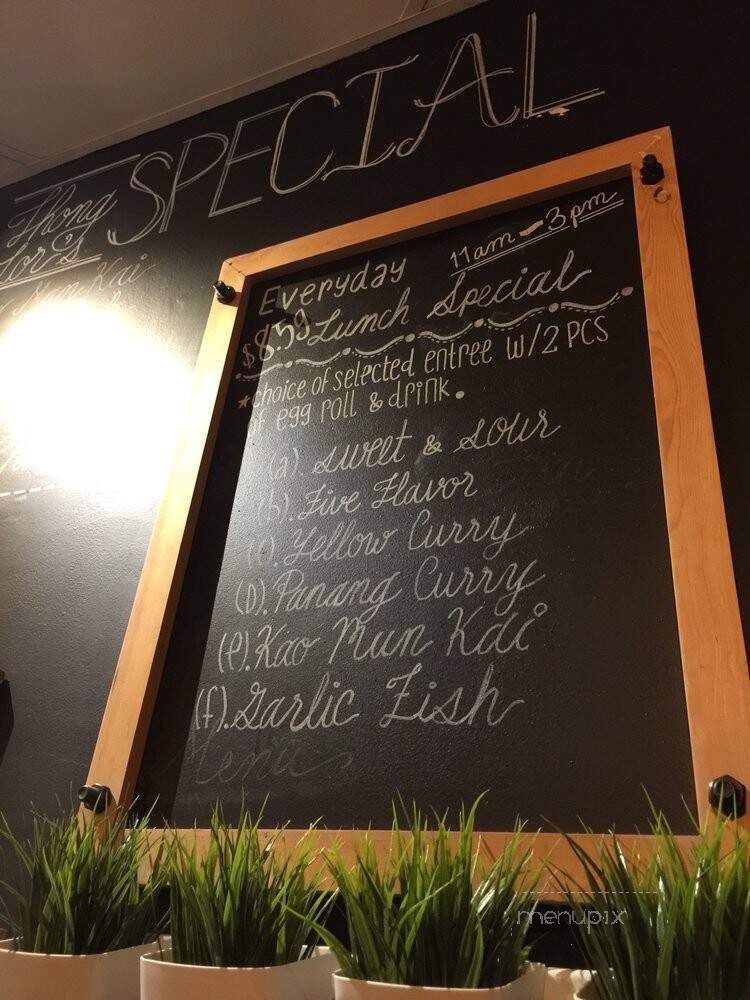 SPECIAL
Thong
Lor's
Mun Kai
Everyday 11am - 3pm
$8.59 Lunch Special
★choice of selected entree w/2 PCS
of egg roll & drink.
(a). sweet & sour
(b). Five Flavor
(c). Yellow Curry
(D). Panang Curry
(e). Kao Mun Kai
(f). Garlic Fish
menupix